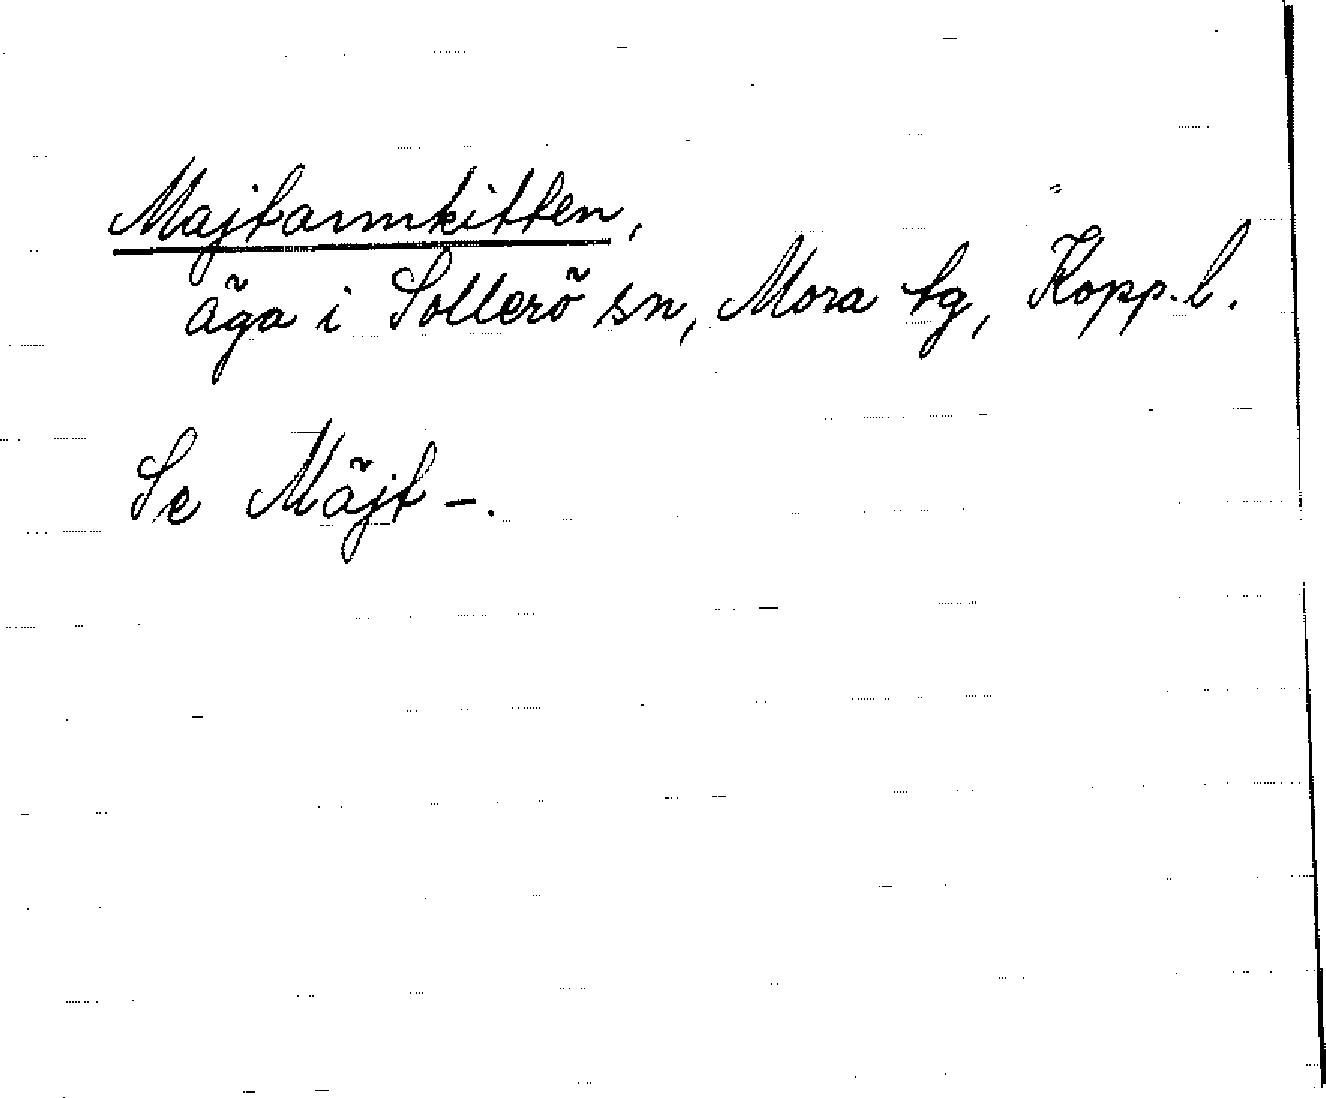 Majtarmkitten,
äga i Sollerö sn, Mora tg, Kopp. l.
Se Mäjt-.